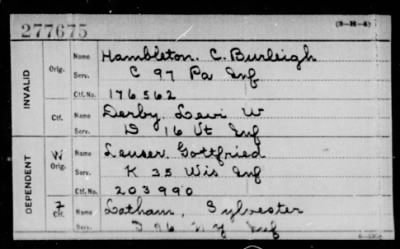 277675 (3-H-4)
INVALID
Orig. Name Hambleton, C. Burleigh
Serv. C 97 Pa Inf
Ctf. No. 176562
Ctf. Name Derby, Levi W
Serv. D 16 Vt Inf
DEPENDENT
W Orig. Name Leuser, Gottfried
Serv. K 35 Wis Inf
Ctf. No. 203990
7 Ctf. Name Latham, Sylvester
Serv. 96 N.Y. Inf